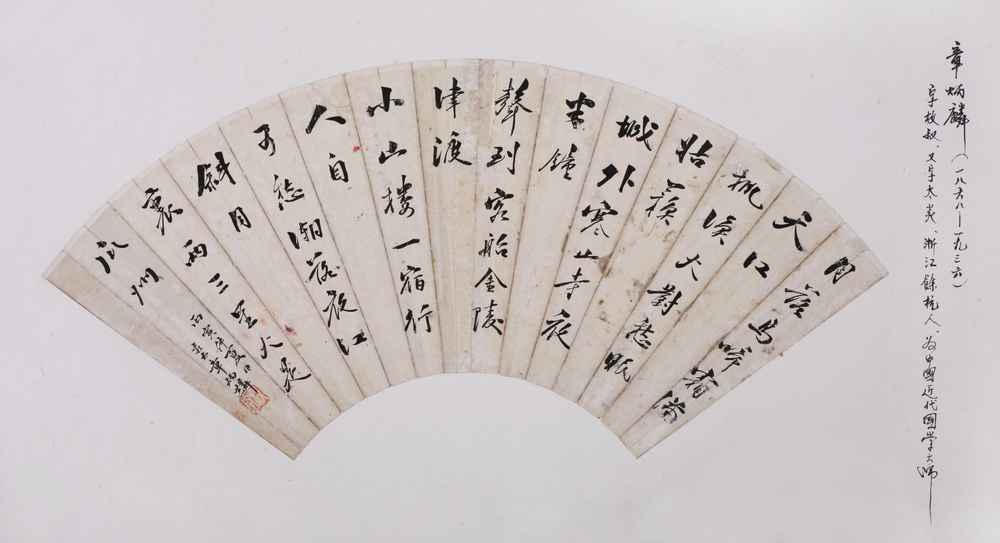 章炳麟（一八六八—一九三六）
字枚叔、又号太炎、浙江餘杭人、为中國近代國學大师
月落烏啼霜滿
天江
楓漁火對愁眠
姑蘇
城外寒山寺夜
半鐘
聲到客船金陵
津渡
小山樓一宿行
人自
可愁潮落夜江
斜月
裏兩三星火是
瓜州
丙寅仲夏
章炳麟